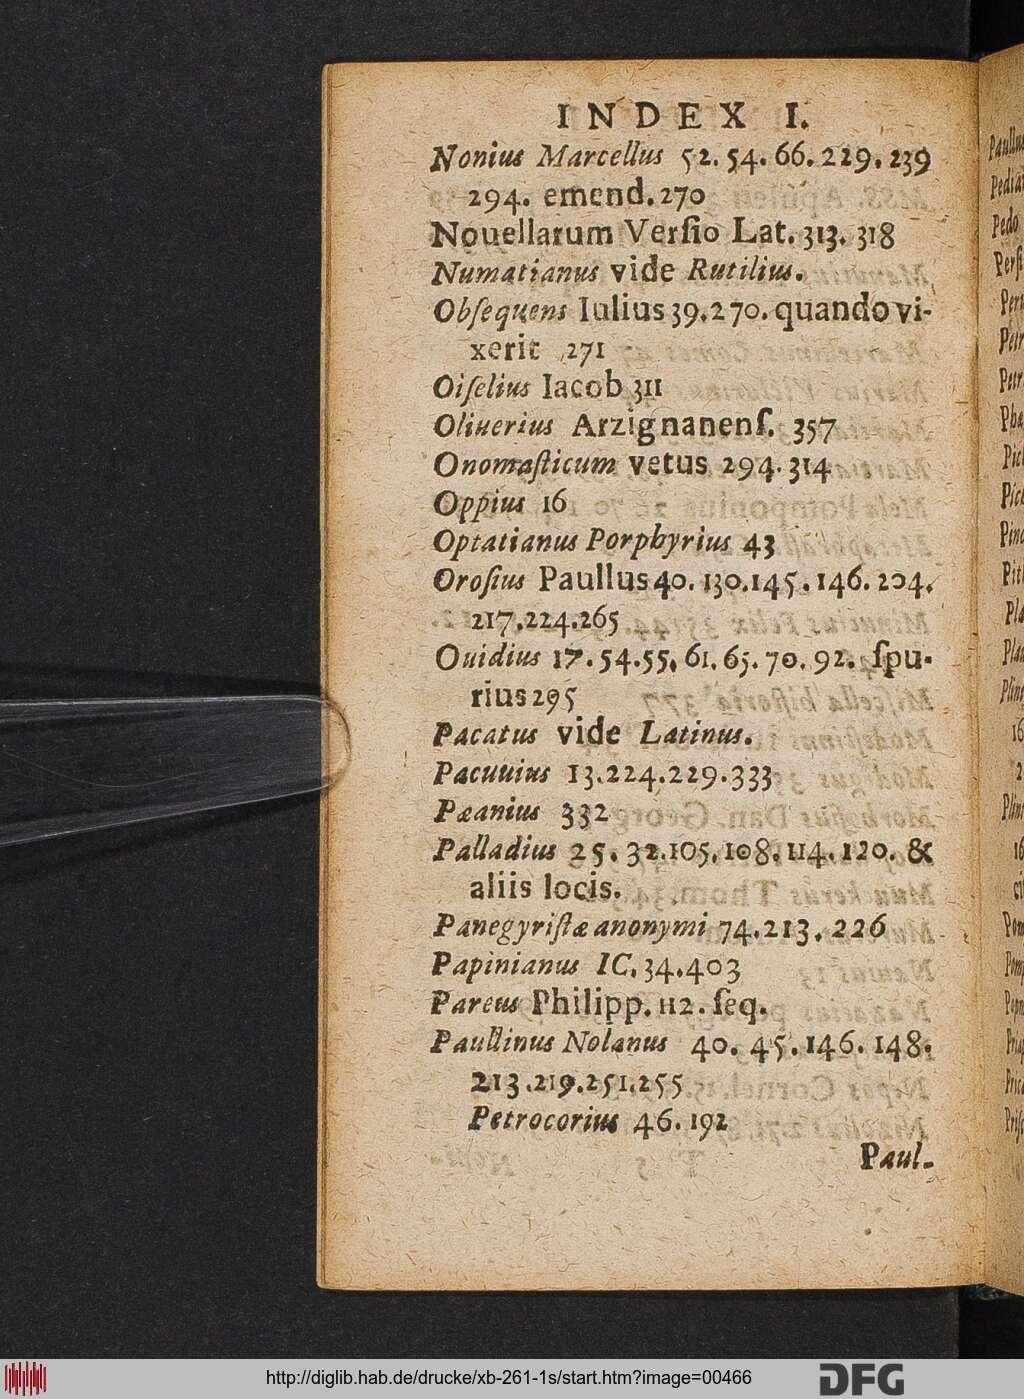 INDEX I.
Nonius Marcellus 52. 54. 66. 229. 239
294. emend. 270
Nouellarum Verſio Lat. 313. 318
Numatianus vide Rutilius.
Obſequens Iulius 39. 270. quando vi-
xerit 271
Oiſelius Iacob 311
Oliuerius Arzignanenſ. 357
Onomaſticum vetus 294. 314
Oppius 16
Optatianus Porphyrius 43
Oroſius Paullus 40. 130. 145. 146. 204.
217. 224. 265
Ouidius 17. 54. 55. 61. 65. 70. 92. ſpu-
rius 295
Pacatus vide Latinus.
Pacuuius 13. 224. 229. 333
Pæanius 332
Palladius 25. 32. 105. 108. 114. 120. &
aliis locis.
Panegyriſtæ anonymi 74. 213. 226
Papinianus IC. 34. 403
Pareus Philipp. 112. ſeq.
Paullinus Nolanus 40. 45. 146. 148.
213. 219. 251. 255
Petrocorius 46. 192
Paul-
http://diglib.hab.de/drucke/xb-261-1s/start.htm?image=00466
DFG